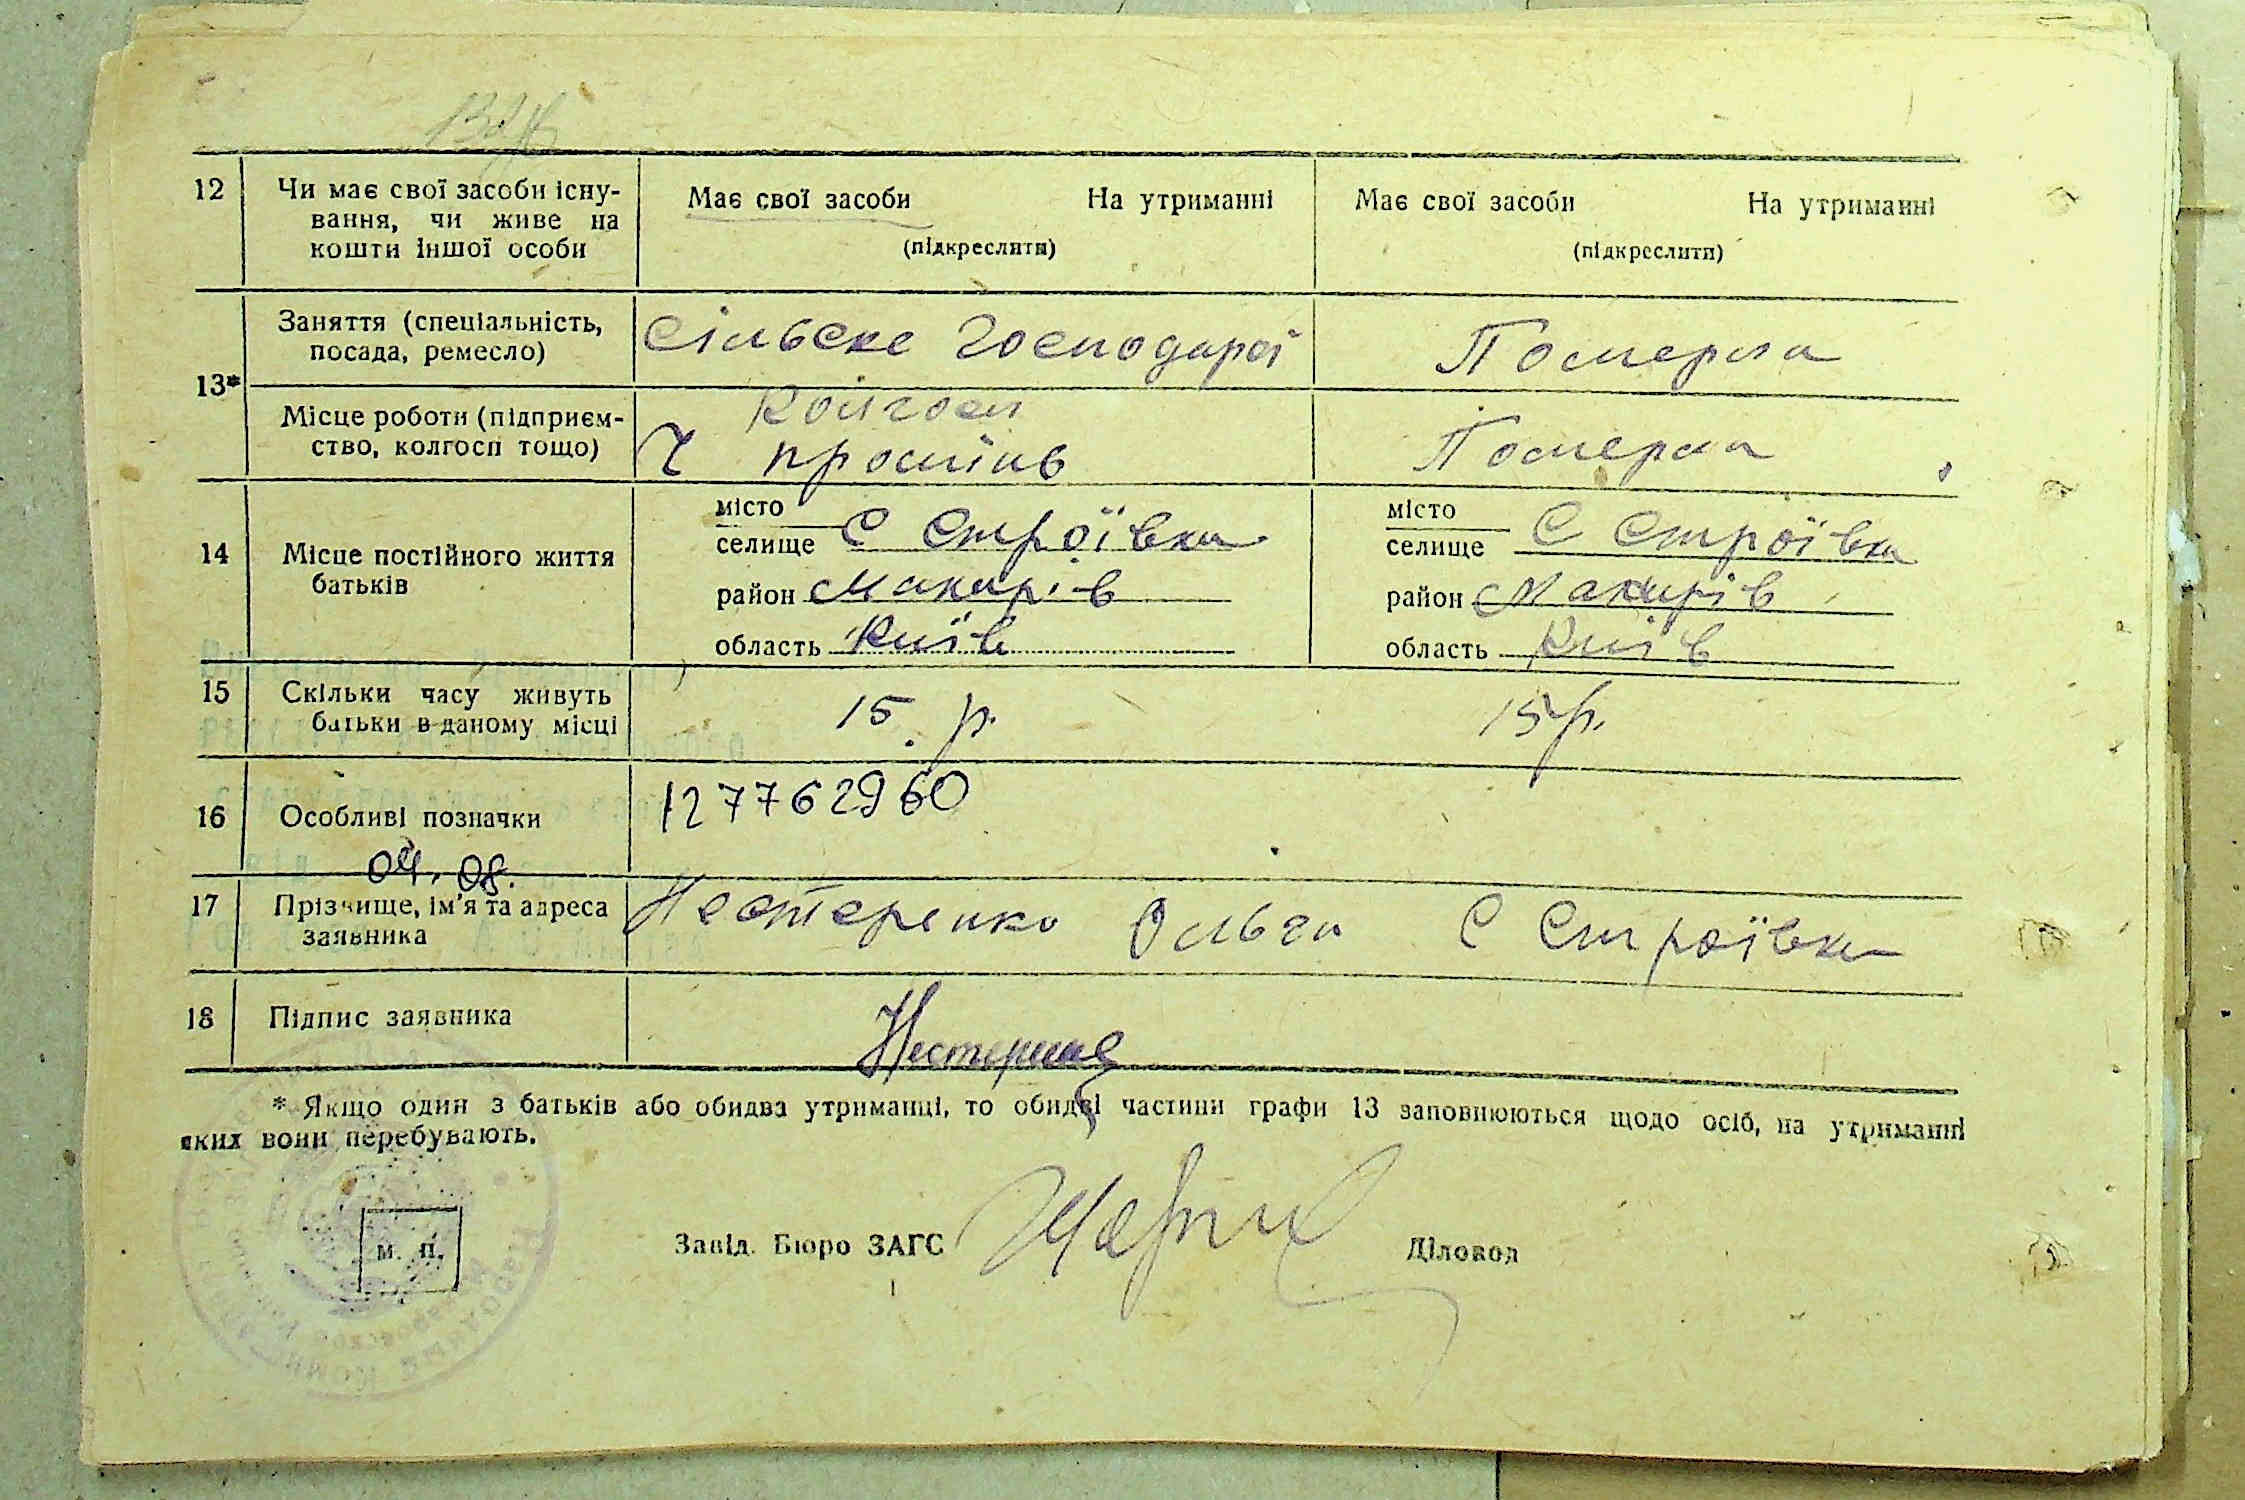 12 Чи має свої засоби існу- Має свої засоби На утриманні Має свої засоби На утриманні
вання, чи живе на
кошти іншої особи (підкреслити) (підкреслити)
Заняття (спеціальність, Сільске Господарсі Померла
посада, ремесло)
13*
Місце роботи (підприєм- Колгосп Померла
ство, колгосп тощо) промінь
місто місто
14 Місце постійного життя селище С Строївка селище С Строївка
батьків район Макарів район Макарів
область Київ область Київ
15 Скільки часу живуть 15 р. 15 р.
батьки в даному місці
16 Особливі позначки 127762960
04.08.
17 Прізвище, ім'я та адреса Нестеренко Ольга С Строївка
заявника
18 Підпис заявника Нестеренко
* Якщо один з батьків або обидва утриманці, то обидві частини графи 13 заповнюються щодо осіб, на утриманні
яких вони перебувають.
м. п. Завід. Бюро ЗАГС Діловод